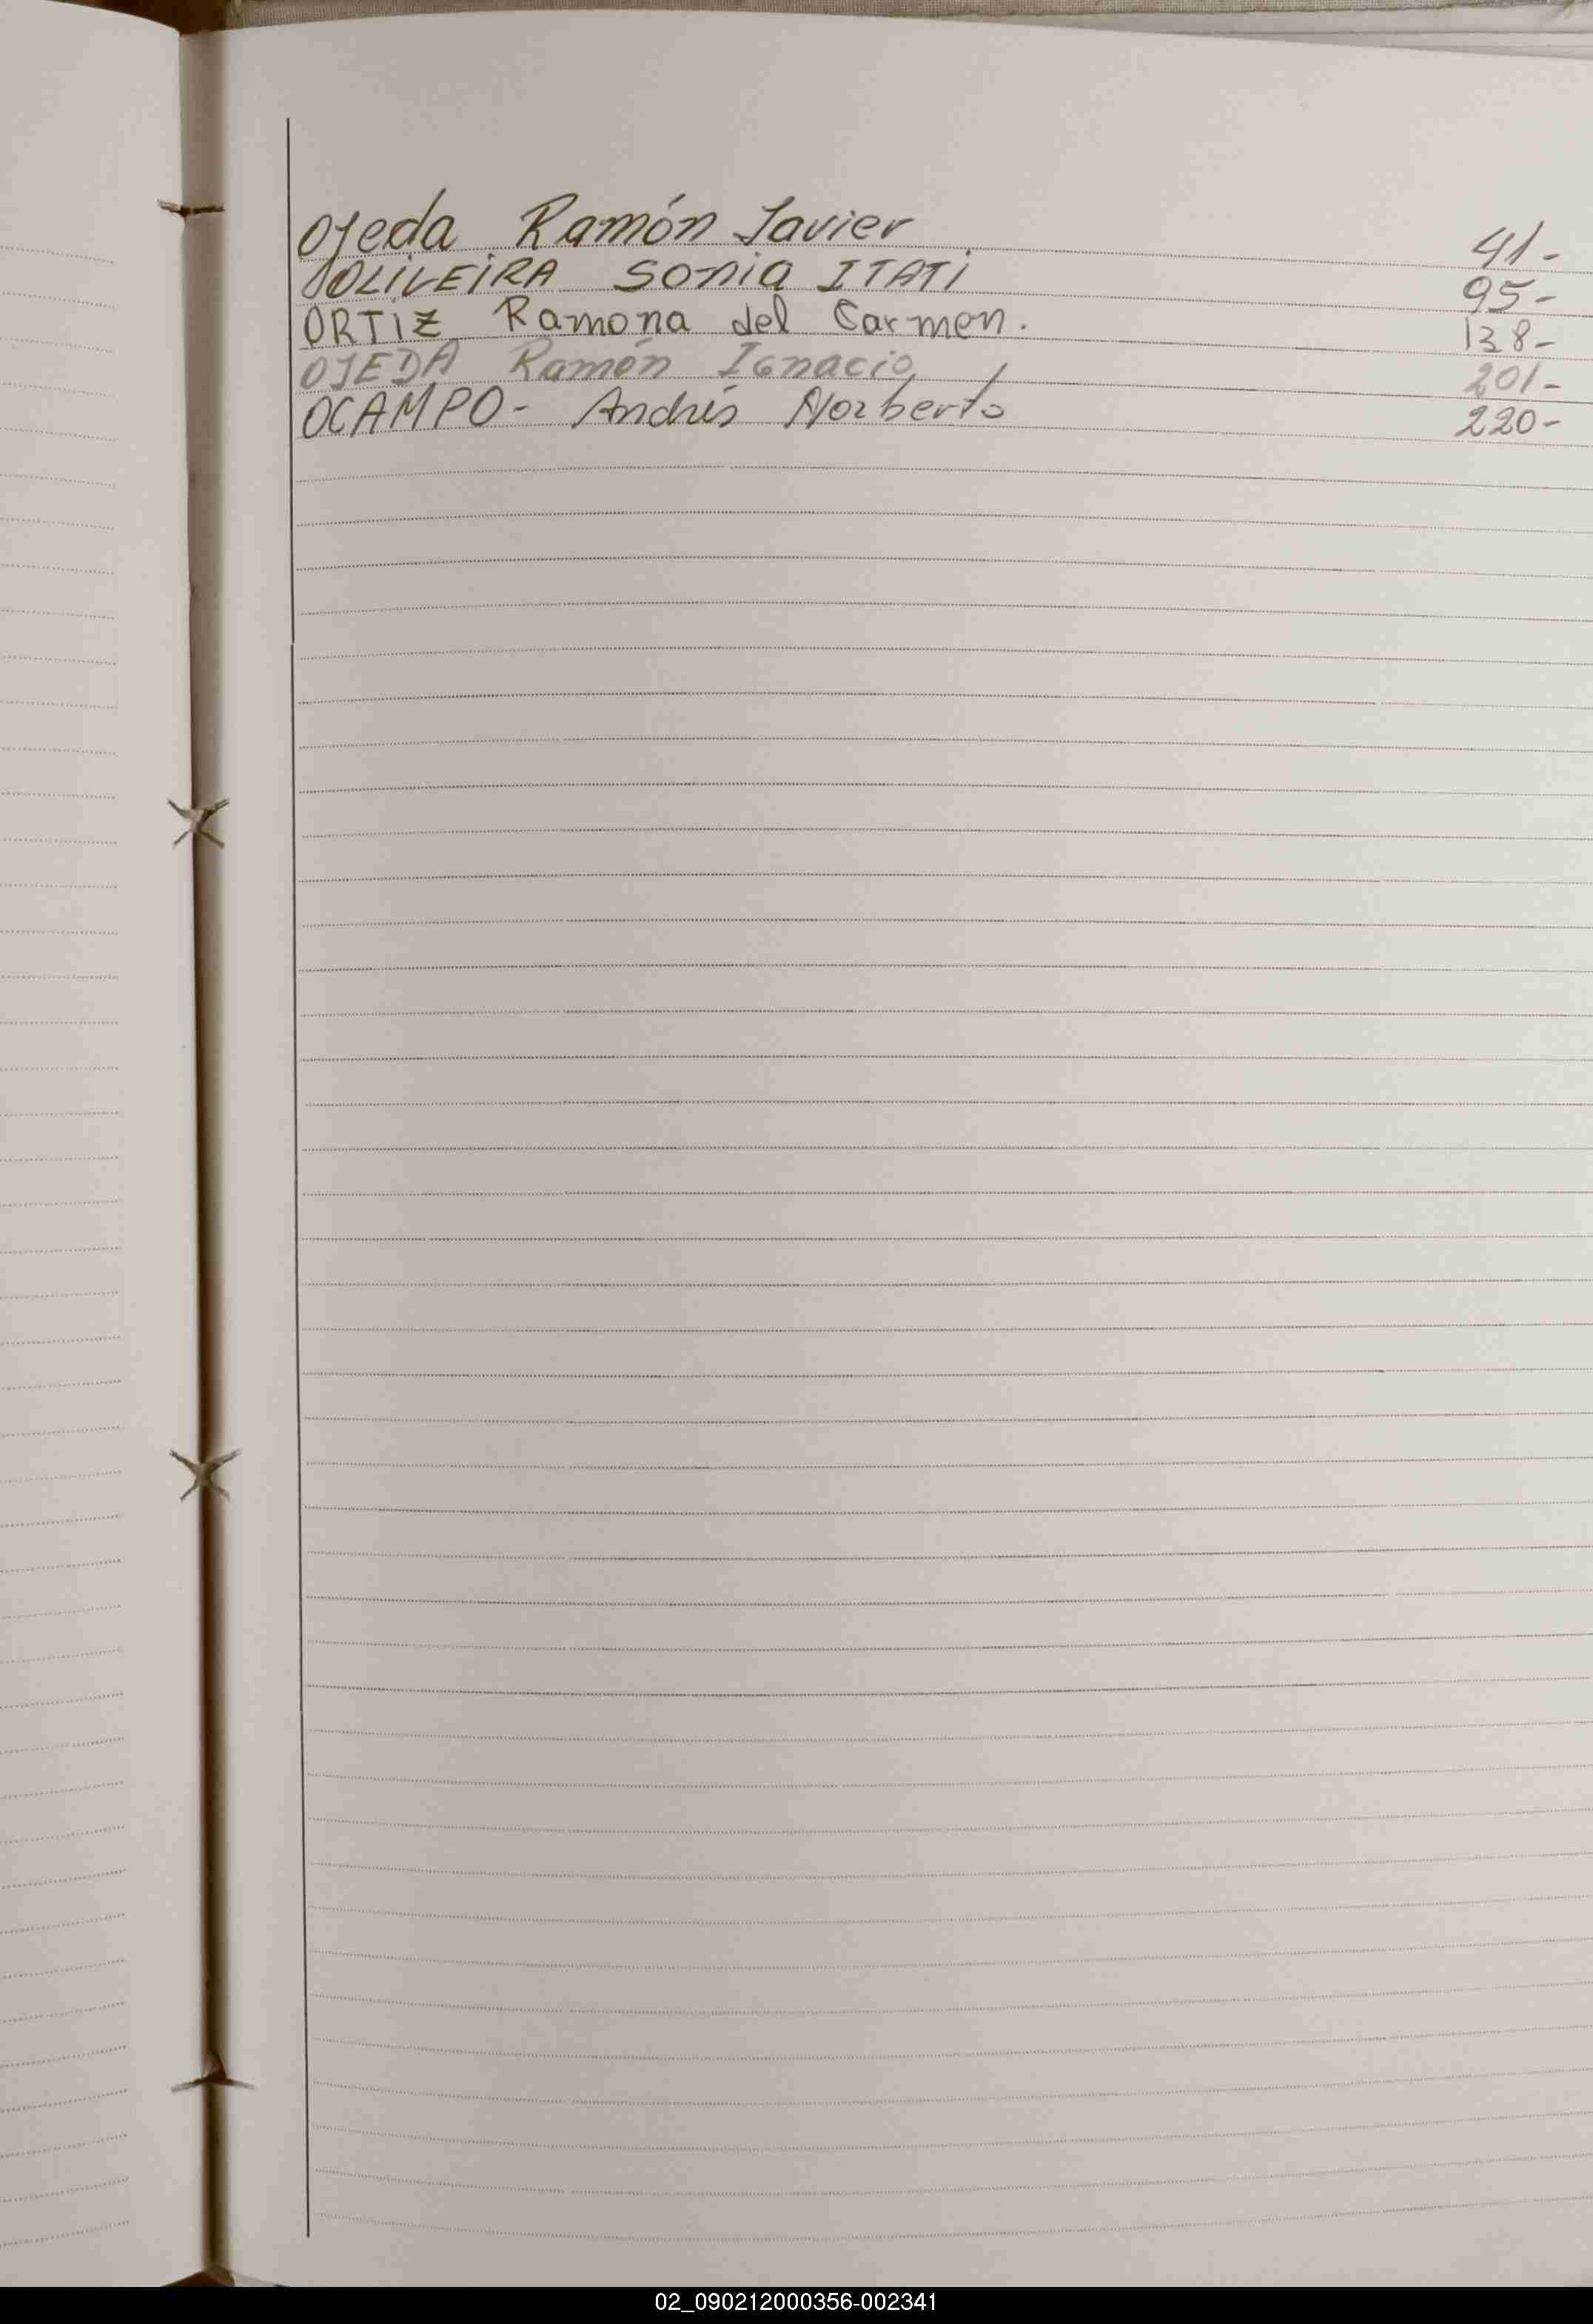 Ojeda Ramón Javier 41-
OLIVEIRA Sonia ITATI 95-
ORTIZ Ramona del Carmen. 138-
OJEDA Ramón Ignacio 201-
OCAMPO- Andrés Norberto 220-
02_090212000356-002341